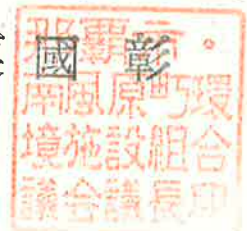 國彰
那覇市・
南風原町環
境施設組合
議会議長印